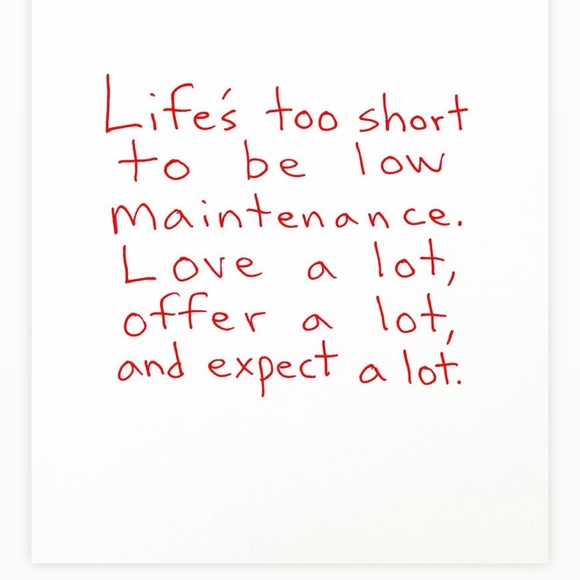 Life's too short
to be low
maintenance.
Love a lot,
offer a lot,
and expect a lot.